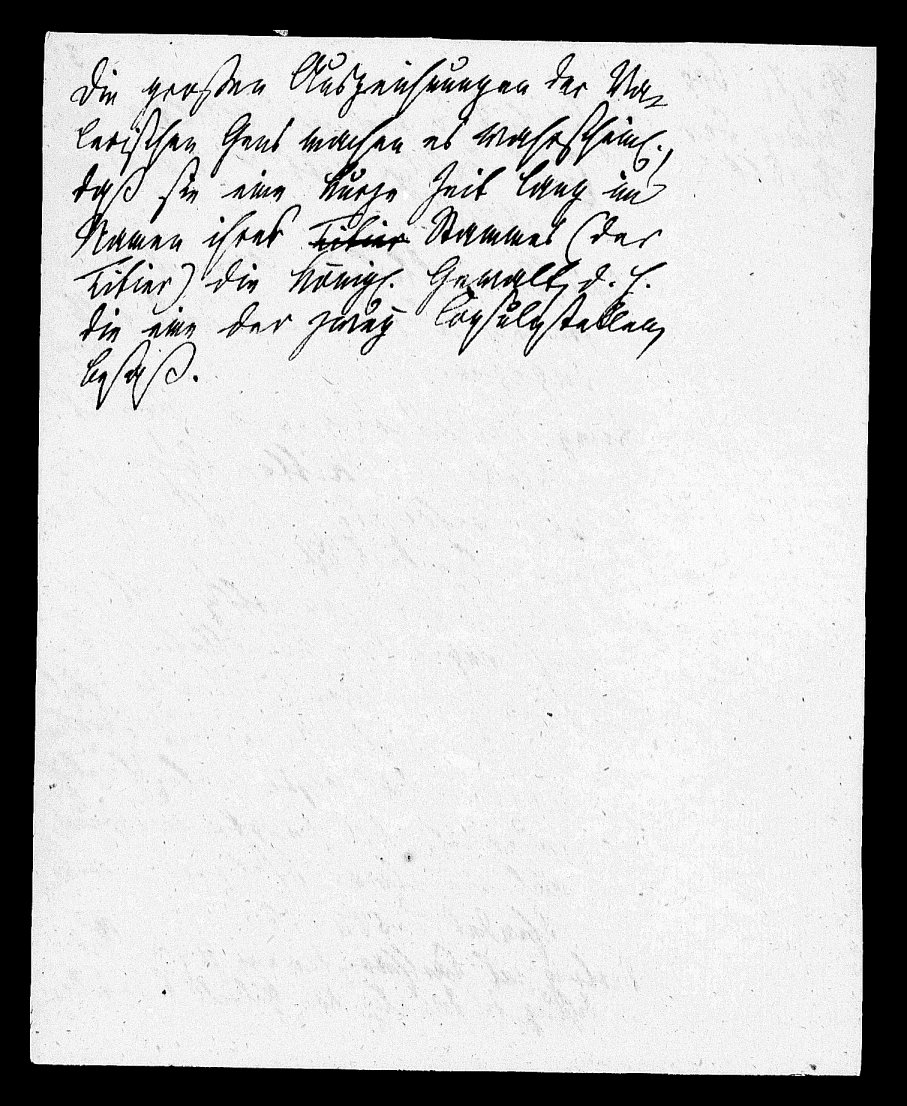 Die großen Auszeichnungen der Va-
lerischen Gens machen es wahrscheinl.,
daß sie eine kurze Zeit lang im
Namen ihres Titier Stammes (der
Titier) die königl. Gewalt, d. h.
die eine der zwey Consulstellen,
besaß.